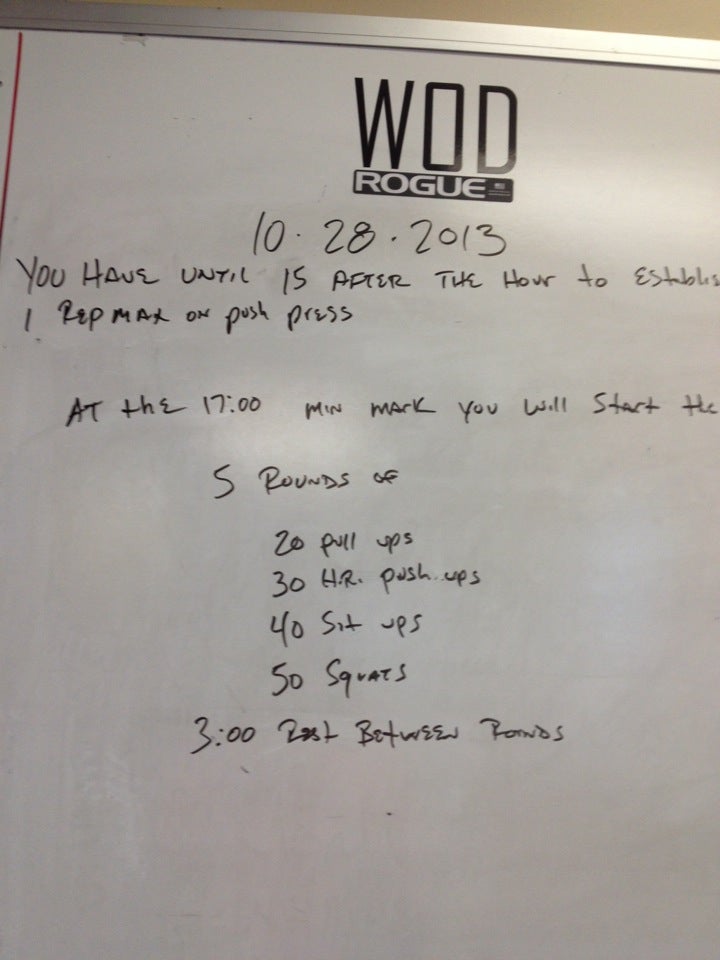 WOD
ROGUE
10.28.2013
YOU HAVE UNTIL 15 AFTER THE HOUR to Establis
1 REP MAX ON push press
AT thE 17:00 MIN MARK YOU Will Start the
5 ROUNDS OF
20 pull ups
30 H.R. push ups
40 Sit ups
50 SQUATS
3:00 REst BEtWEEN ROUNDS